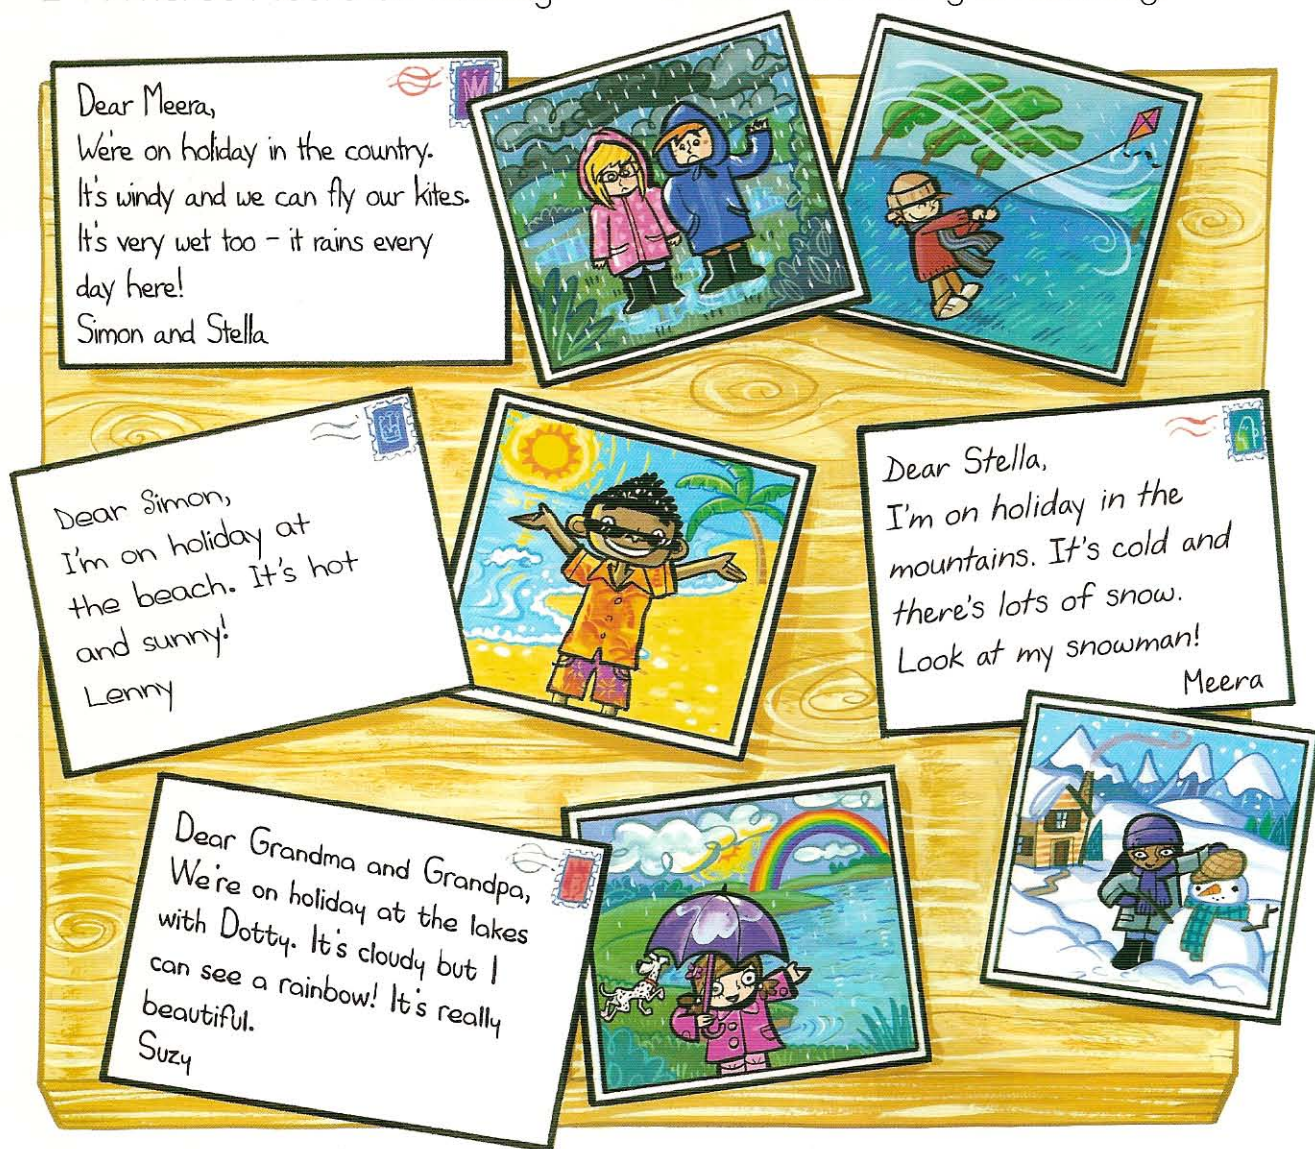 Dear Meera,
We're on holiday in the country.
It's windy and we can fly our kites.
It's very wet too – it rains every
day here!
Simon and Stella
Dear Simon,
I'm on holiday at
the beach. It's hot
and sunny!
Lenny
Dear Stella,
I'm on holiday in the
mountains. It's cold and
there's lots of snow.
Look at my snowman!
Meera
Dear Grandma and Grandpa,
We're on holiday at the lakes
with Dotty. It's cloudy but I
can see a rainbow! It's really
beautiful.
Suzy